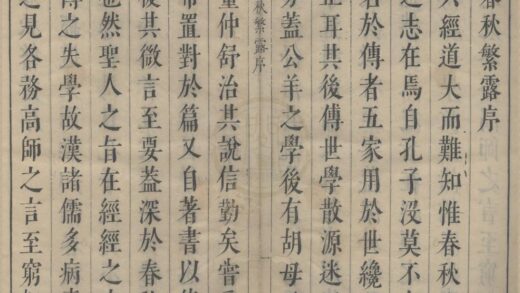 春秋繁露序
六經道大而難知惟春秋
之志在焉自孔子没莫不
名於傳者五家用於世纔
止耳其後傳世學散源迷
蓋公羊之學後有胡母
秋繁露序
董仲舒治其說信勤矣嘗
布置對於篇又自著書以
後其微言至要蓋深於春
也然聖人之旨在經經之
傳之失學故漢諸儒多病
之見各務高師之言至窮